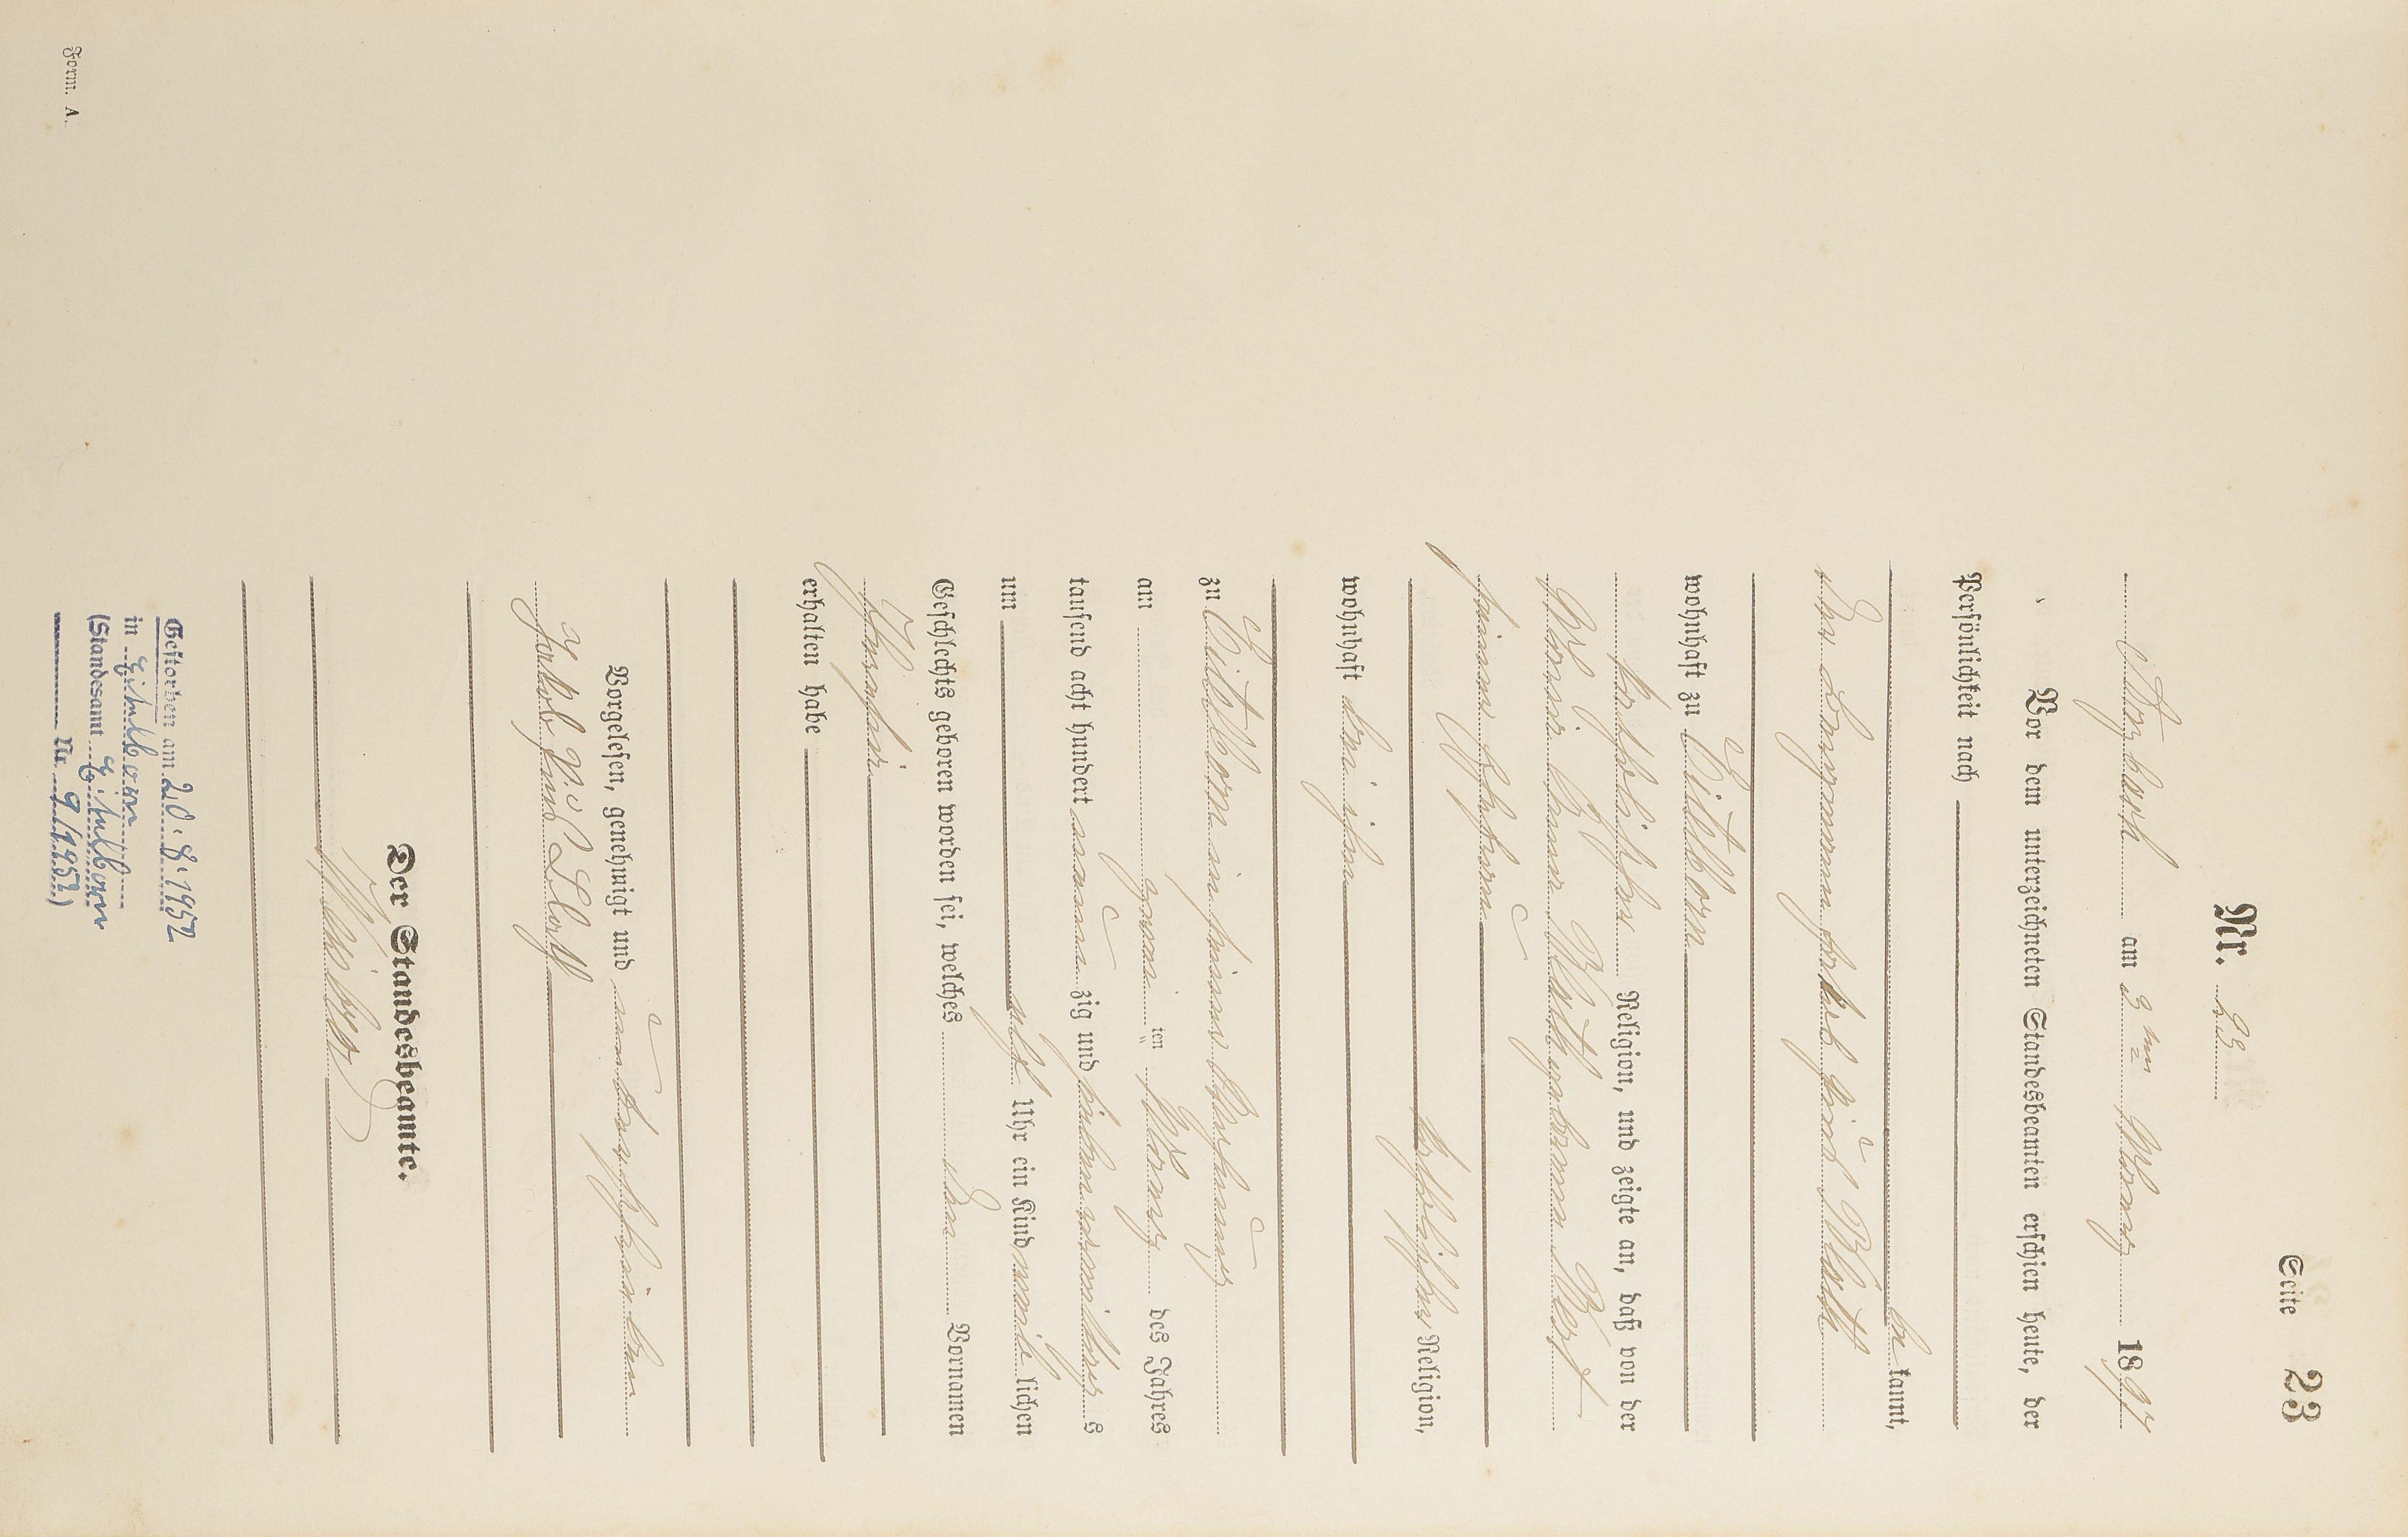 Seite 23
Nr. 23
am 3ten März 1897
Vor dem unterzeichneten Standesbeamten erschien heute, der
Persönlichkeit nach
be kannt,
der Bergmann Jakob
wohnhaft zu Eitelborn
katholischer Religion, und zeigte an, daß von der
Maria Anna geborenen
seiner Ehefrau
katholischer Religion,
wohnhaft bei ihm
zu Eitelborn in seiner Behausung
am zweiten März des Jahres
tausend acht hundert neun zig und sieben vormittags
um elf Uhr ein Kind weib lichen
Geschlechts geboren worden sei, welches den Vornamen
erhalten habe
Vorgelesen, genehmigt und unterschrieben
Jakob
Der Standesbeamte.
Gestorben am 20. 8. 1952
in Eitelborn
(Standesamt Eitelborn
Nr. 9/1952)
Form. A.